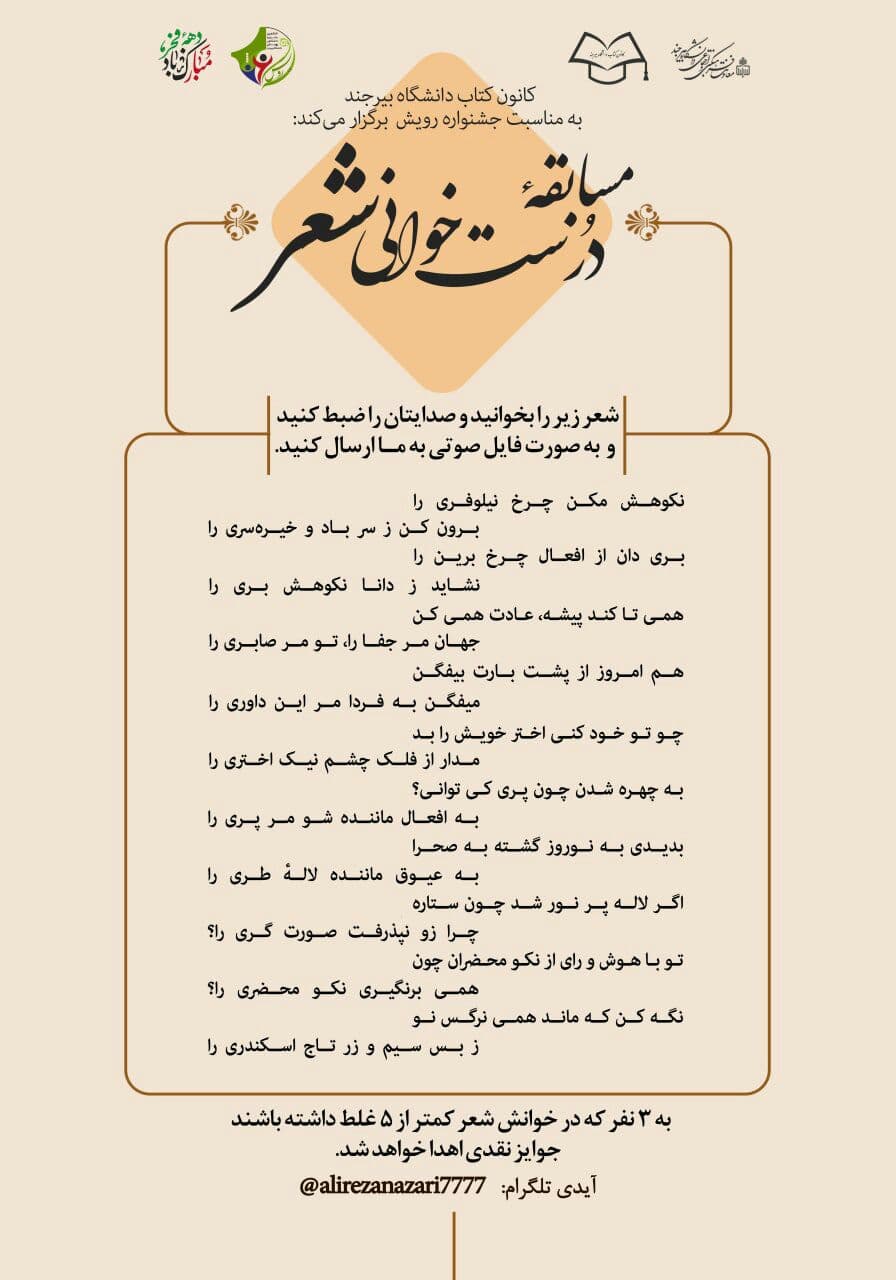 دههٔ فجر
مبارک باد
کانون کتاب دانشگاه بیرجند
به مناسبت جشنواره رویش برگزار می‌کند:
مسابقهٔ
درُست خوانی شعر
شعر زیر را بخوانید و صدایتان را ضبط کنید
و به صورت فایل صوتی به ما ارسال کنید.
نکوهش مکن چرخ نیلوفری را
برون کن ز سر باد و خیره‌سری را
بری دان از افعال چرخ برین را
نشاید ز دانا نکوهش بری را
همی تا کند پیشه، عادت همی کن
جهان مر جفا را، تو مر صابری را
هم امروز از پشت بارت بیفگن
میفگن به فردا مر این داوری را
چو تو خود کنی اختر خویش را بد
مدار از فلک چشم نیک اختری را
به چهره شدن چون پری کی توانی؟
به افعال ماننده شو مر پری را
بدیدی به نوروز گشته به صحرا
به عیوق ماننده لالهٔ طری را
اگر لاله پر نور شد چون ستاره
چرا زو نپذرفت صورت گری را؟
تو با هوش و رای از نکو محضران چون
همی برنگیری نکو محضری را؟
نگه کن که ماند همی نرگس نو
ز بس سیم و زر تاج اسکندری را
به ۳ نفر که در خوانش شعر کمتر از ۵ غلط داشته باشند
جوایز نقدی اهدا خواهد شد.
آیدی تلگرام: @alirezanazari7777